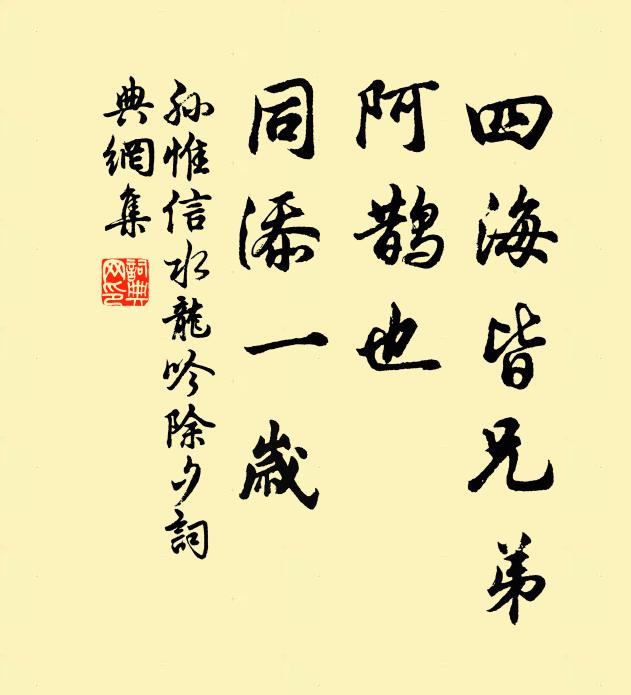 四海皆兄弟
阿鵲也
同添一歲
孫惟信水龍吟除夕詞
典網集
詞典
网印